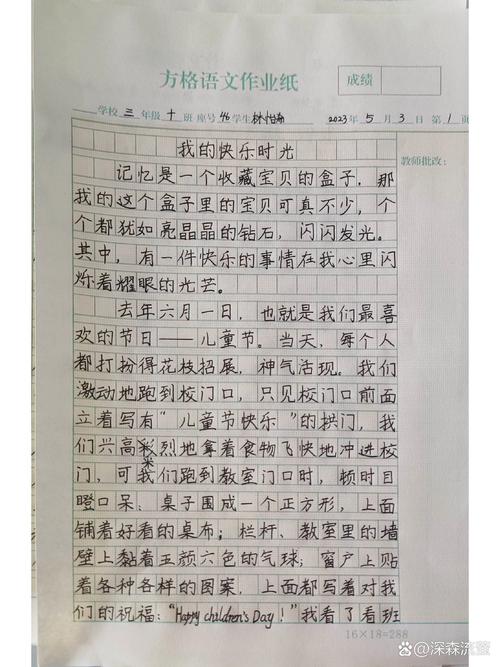 方格语文作业纸
成绩
学校三年级十班 座号46学生林怡 2023年5月3日第1页
教师批改：
我的快乐时光
记忆是一个收藏宝贝的盒子，那
我的这个盒子里的宝贝可真不少，个
个都犹如亮晶晶的钻石，闪闪发光。
其中，有一件快乐的事情在我心里闪
烁着耀眼的光芒。
去年六月一日，也就是我们最喜
欢的节日——儿童节。当天，每个人
都打扮得花枝招展，神气活现。我们
激动地跑到校门口，只见校门口前面
立着写有“儿童节快乐”的拱门，我
们兴高彩烈地拿着食物飞快地冲进校
采
门，可我们跑到教室门口时，顿时目
瞪口呆：桌子围成一个正方形，上面
铺着好看的桌布；栏杆、教室里的墙
壁上黏着五颜六色的气球；窗户上贴
着各种各样的图案，上面都写着对我
们的祝福：“Happy children's Day！”我看了看班
16×18=288
@深森流萤